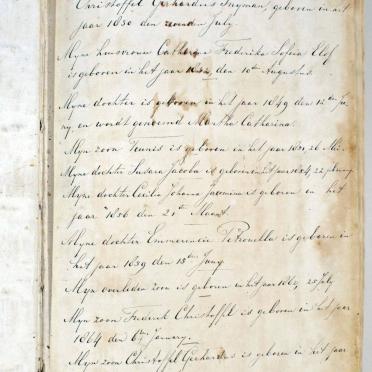 Christoffel Gerhardus Snyman, geboren in het
jaar 1830 den zevenden July
Myne huisvrouw Catharina Frederika Sofeia Elof
is geboren in het jaar 1832, den 10de Augustus.
Myne dochter is geboren in het jaar 1849 den 12de
en wordt genoemd Martha Catharina.
Myn zoon Teunis is geboren in het jaar 1851, 26 Mei.
Myne dochter Susara Jacoba is geboren in het jaar 1854, 22
Myne dochter Cecilia Johanna is geboren in het
jaar 1856 den 21st Maart.
Myne dochter Emmerentie Petronella is geboren in
het jaar 1859 den 15de Juny
Myn overleden zoon is geboren in het jaar 1862 25 July
Myn zoon Frederik Christoffel is geboren in het jaar
1864 den 6de January.
Myn zoon Christoffel Gerhardus is geboren in het jaar